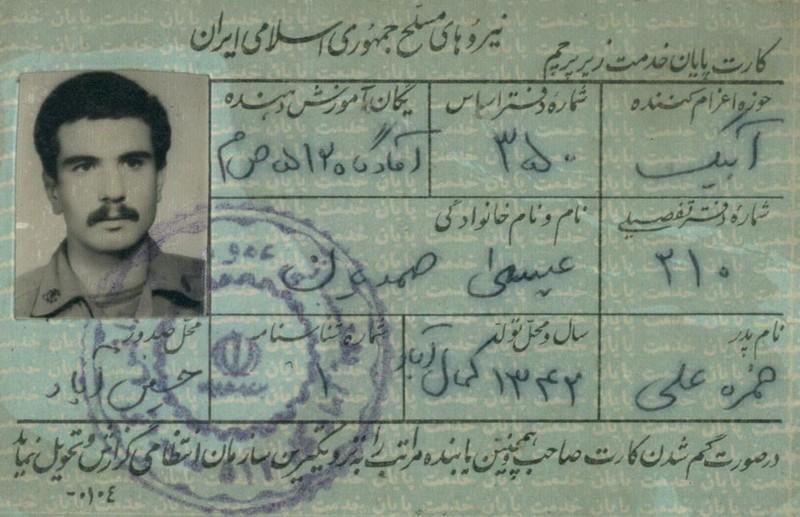 نیروهای مسلح جمهوری اسلامی ایران
کارت پایان خدمت زیر پرچم
حوزه اعزام کننده
شماره دفتر اساس
یگان آموزش دهنده
آبیک
۳۵۰
آمادگاه ۵۱۲ ص م
شماره دفتر تفصیلی
نام و نام خانوادگی
۲۱۰
عیسی
نام پدر
سال و محل تولد
شماره شناسنامه
محل صدور
حمزه علی
۱۳۴۲ کمال آباد
۱
آباد
در صورت گم شدن کارت صاحب و همچنین یابنده مراتب را به نزدیکترین سازمان انتظامی گزارش و تحویل نماید
۰۱۰۴-